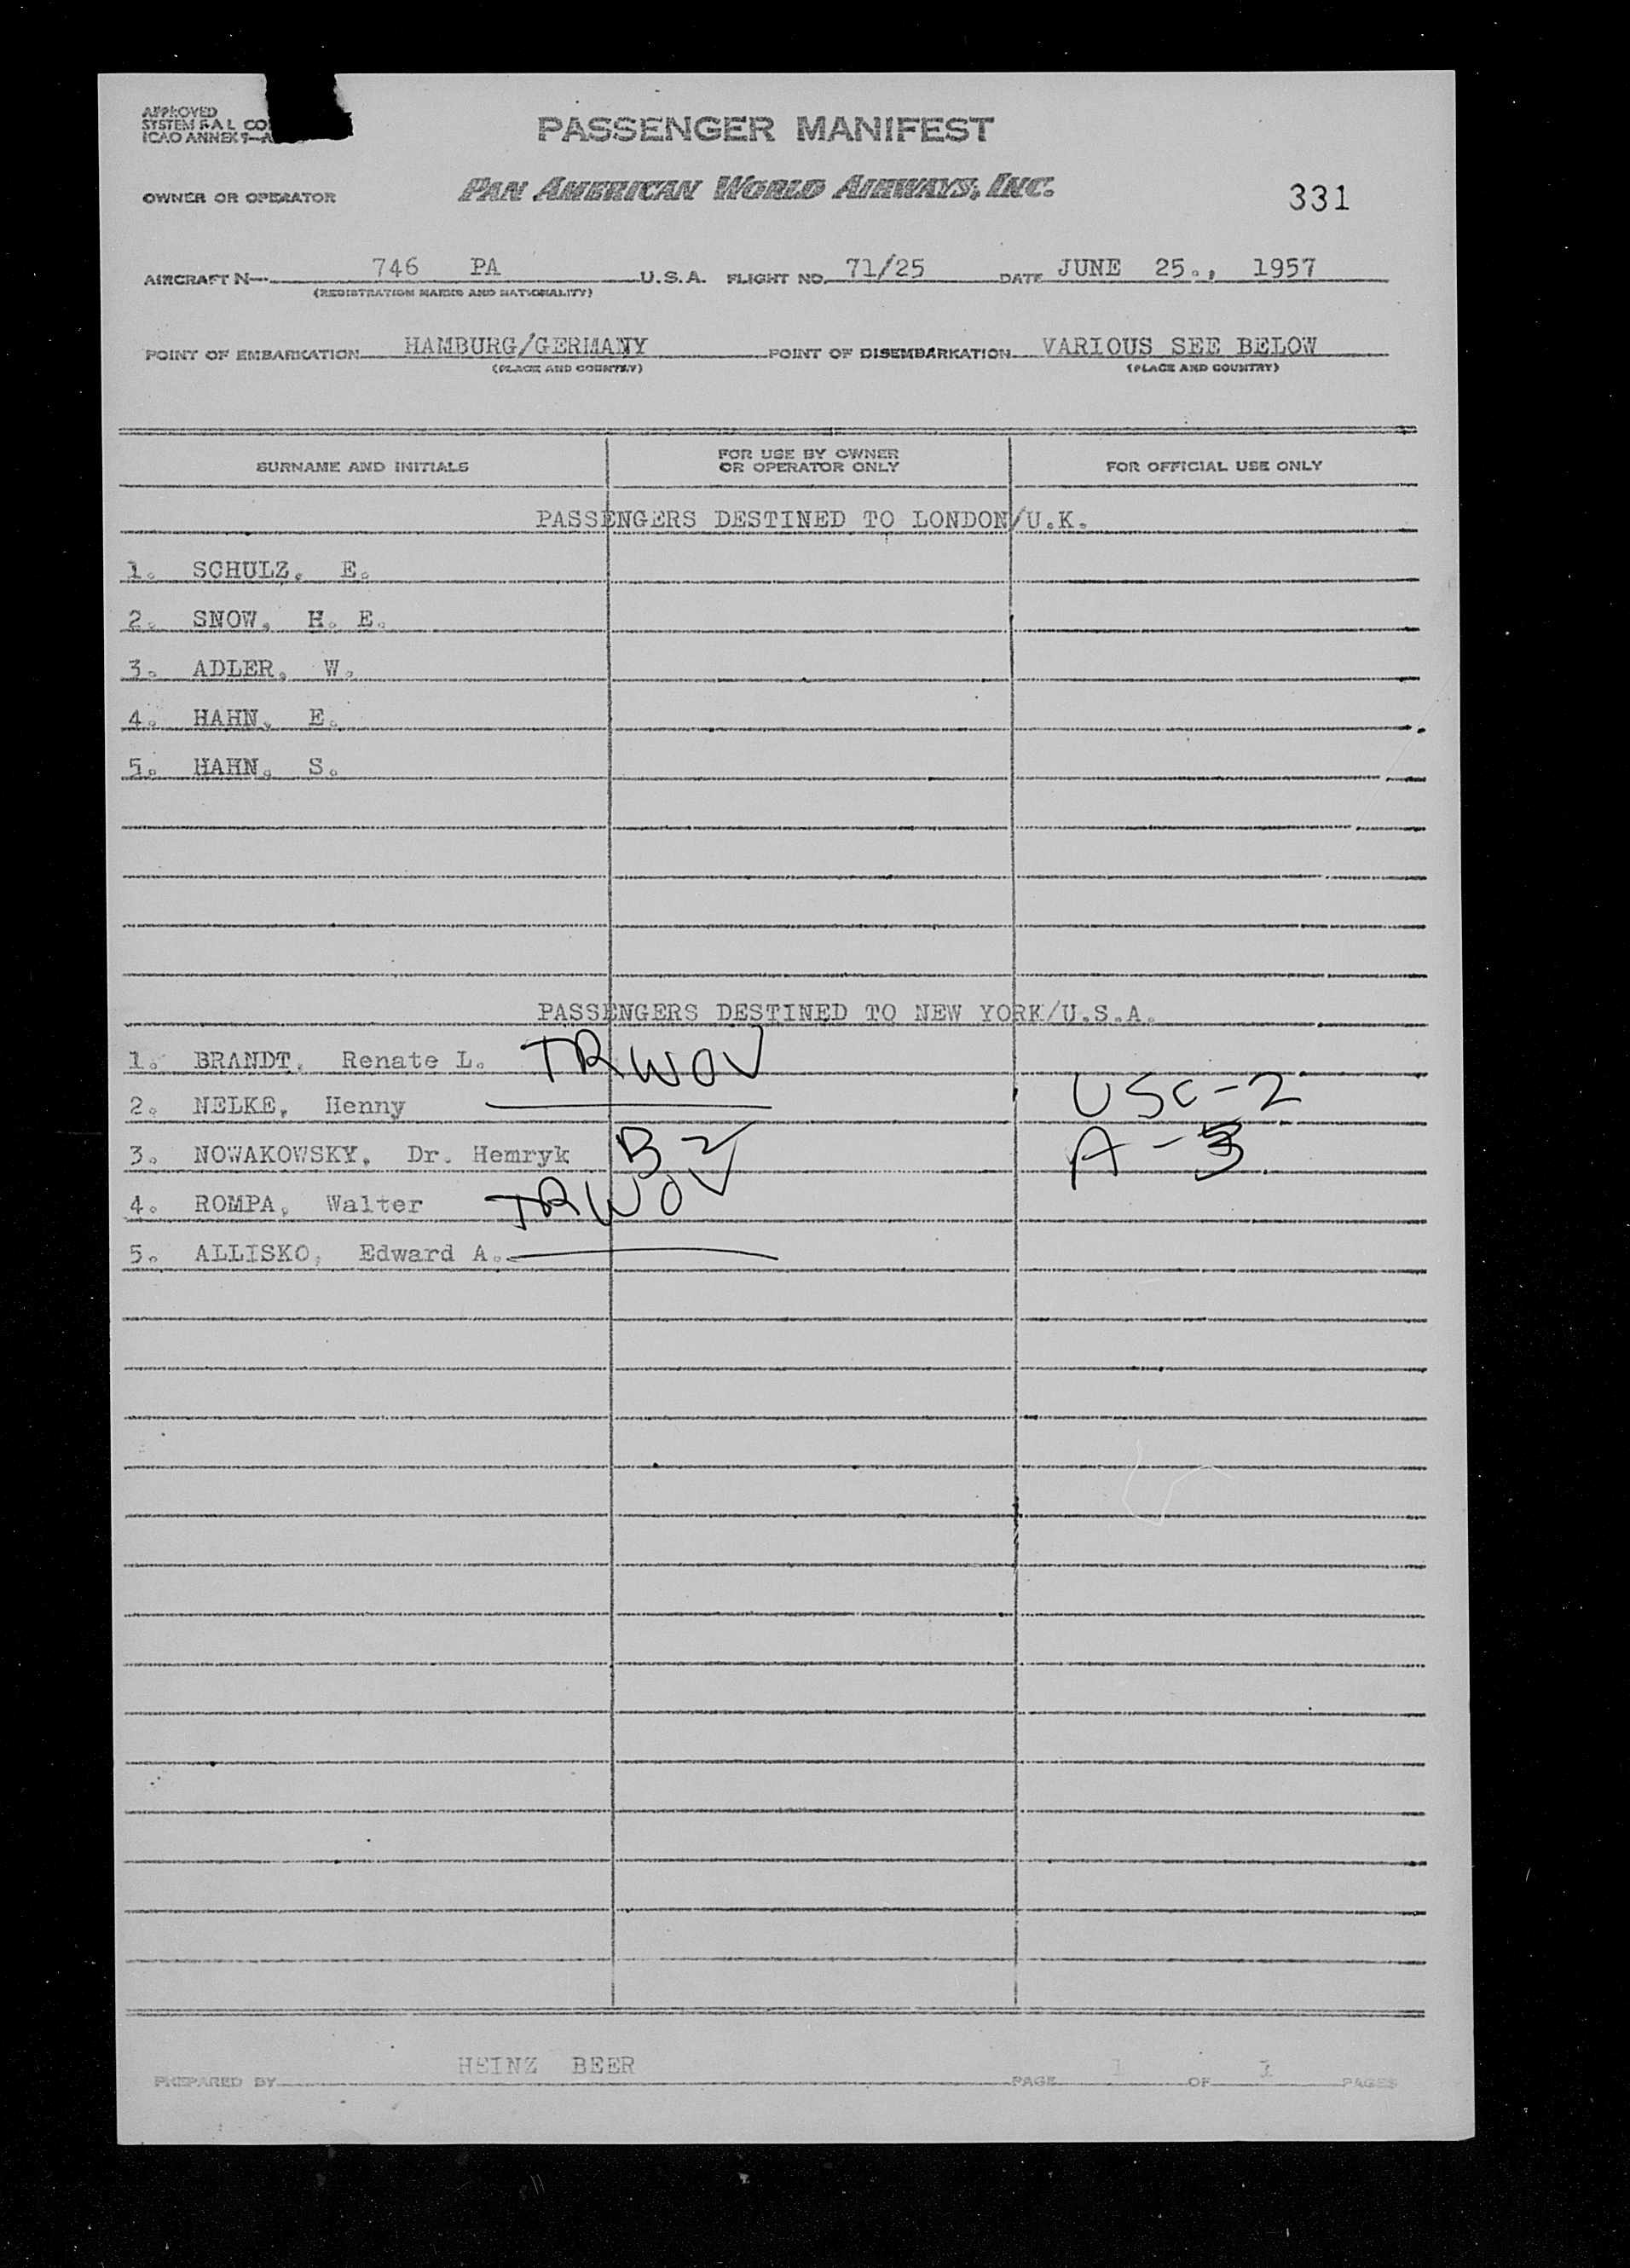 APPROVED
SYSTEM F.A.L. CO
ICAO ANNEX 9—A
PASSENGER MANIFEST
OWNER OR OPERATOR PAN AMERICAN WORLD AIRWAYS, INC. 331
AIRCRAFT N— 746 PA U.S.A. FLIGHT NO. 71/25 DATE JUNE 25., 1957
(REGISTRATION MARKS AND NATIONALITY)
POINT OF EMBARKATION HAMBURG/GERMANY POINT OF DISEMBARKATION VARIOUS SEE BELOW
(PLACE AND COUNTRY) (PLACE AND COUNTRY)
SURNAME AND INITIALS FOR USE BY OWNER OR OPERATOR ONLY FOR OFFICIAL USE ONLY
PASSENGERS DESTINED TO LONDON/U.K.
1. SCHULZ, E.
2. SNOW, H. E.
3. ADLER, W.
4. HAHN, E.
5. HAHN, S.
PASSENGERS DESTINED TO NEW YORK/U.S.A.
1. BRANDT, Renate L. TRWOV
2. NELKE, Henny USC-2
3. NOWAKOWSKY, Dr. Hemryk B2 A-3
4. ROMPA, Walter TRWOV
5. ALLISKO, Edward A.
HEINZ BEER
PREPARED BY PAGE 1 OF 1 PAGES